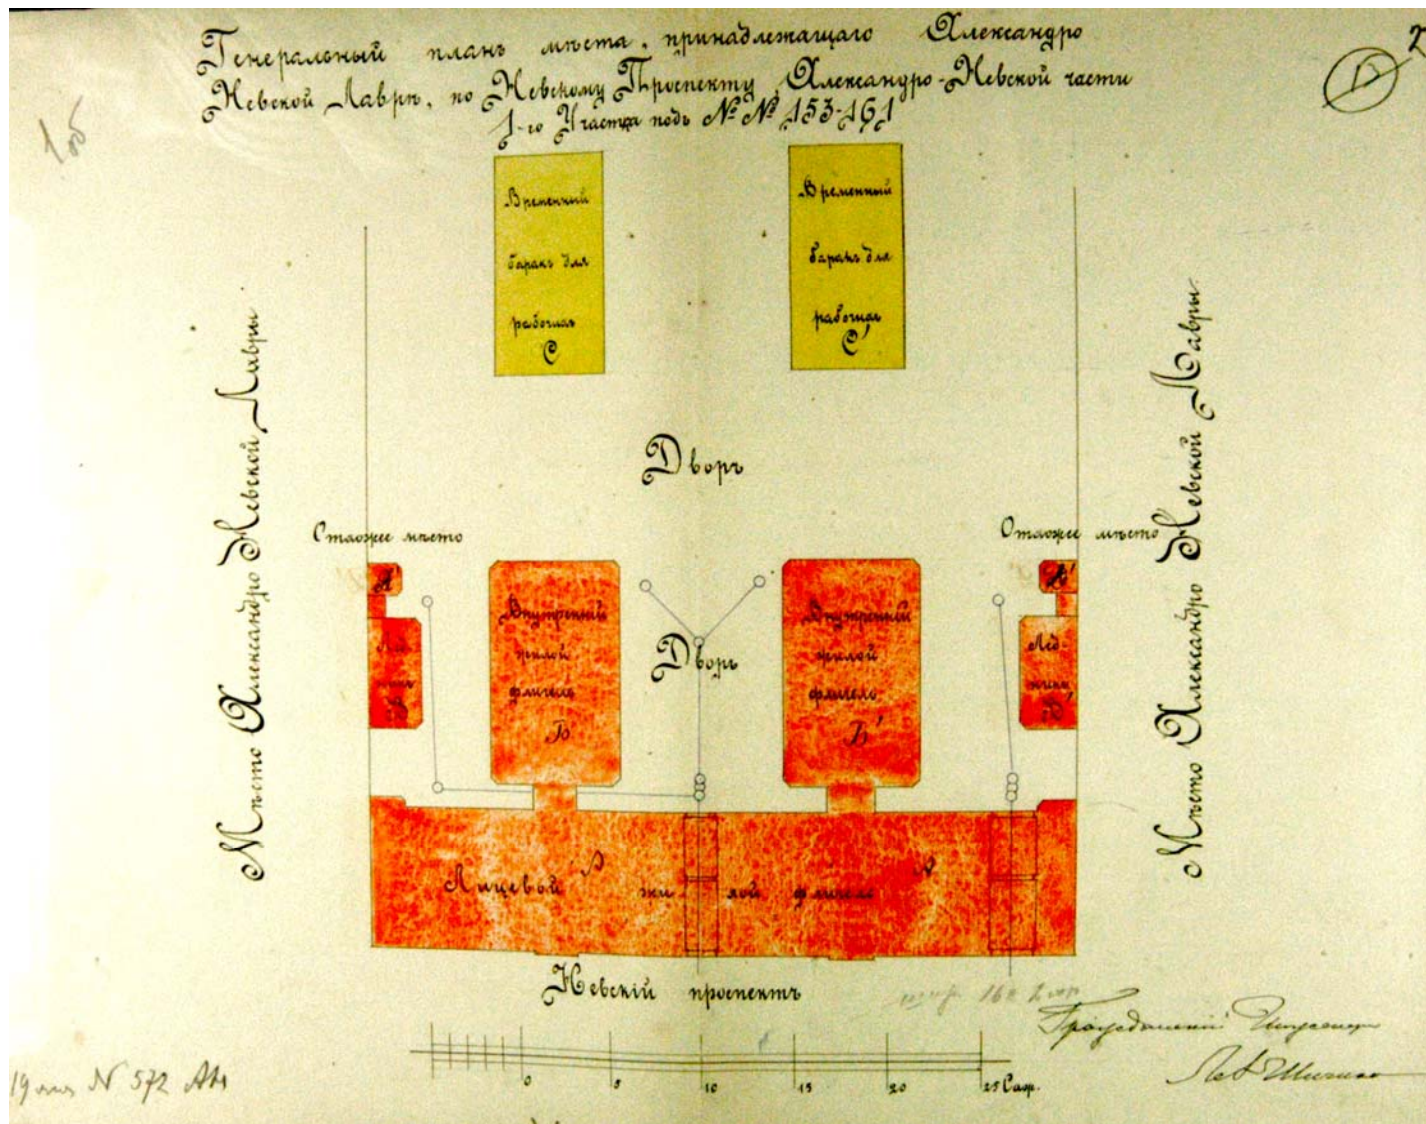 Генеральный планъ мѣста, принадлежащаго Александро
Невской Лаврѣ, по Невскому Проспекту, Александро-Невской части
1-го Участка подъ №№ 153-161
2
1 об
Временный
баракъ для
рабочихъ
С
Временный
баракъ для
рабочихъ
С'
Мѣсто Александро Невской Лавры
Мѣсто Александро Невской Лавры
Дворъ
Отхожее мѣсто
Отхожее мѣсто
Внутренній
жилой
флигель
Б
Дворъ
Внутренній
жилой
флигель
Б'
Лед-
никъ
В
Лед-
никъ
В'
Лицевой А жилой флигель А
Невскій проспектъ
Гражданскій Инженеръ
Лев Шишко
19 мая N 572
0 5 10 15 20 25 Саж.